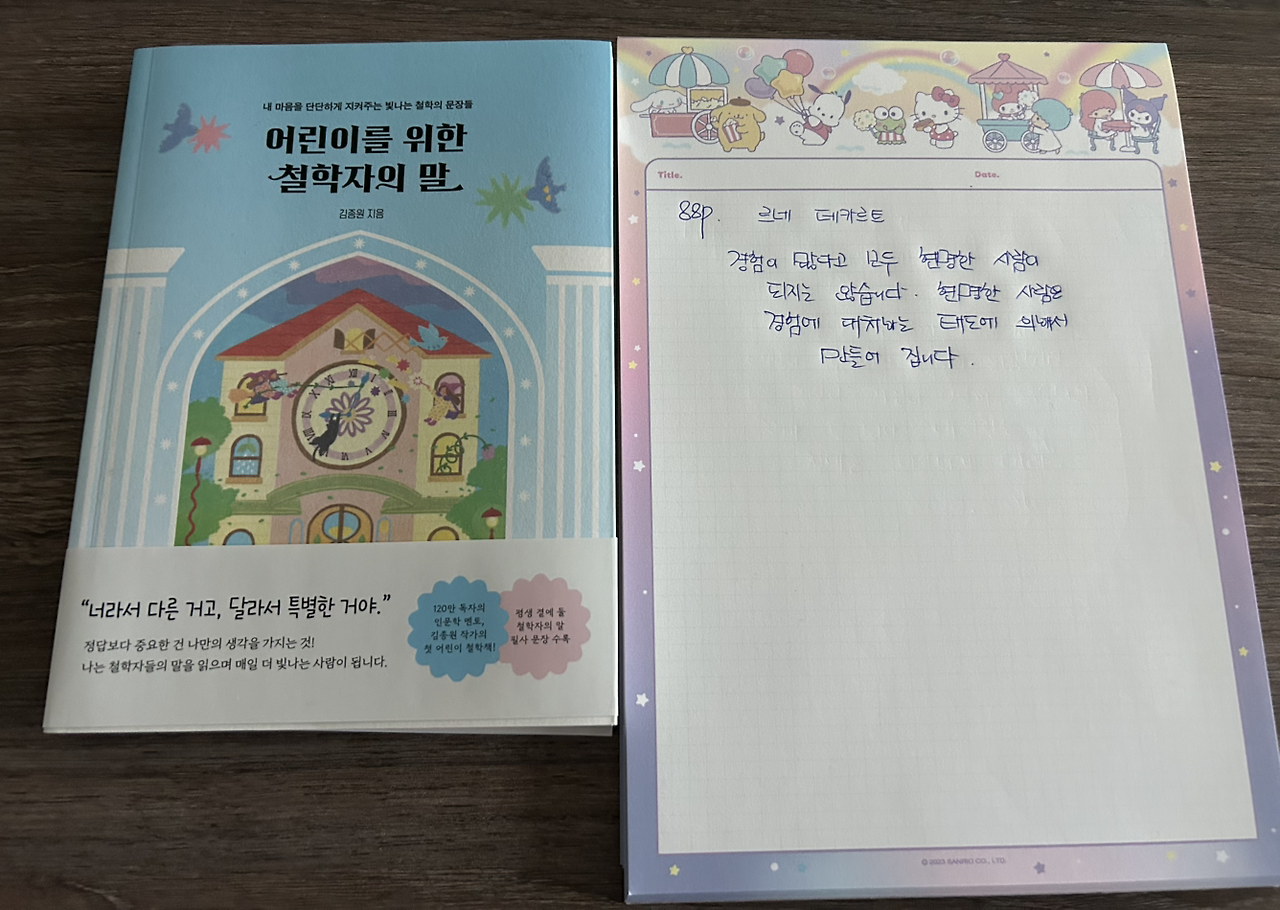 내 마음을 단단하게 지켜주는 빛나는 철학의 문장들
어린이를 위한
철학자의 말
김종원 지음
“너라서 다른 거고, 달라서 특별한 거야.”
정답보다 중요한 건 나만의 생각을 가지는 것!
나는 철학자들의 말을 읽으며 매일 더 빛나는 사람이 됩니다.
120만 독자의
인문학 멘토,
김종원 작가의
첫 어린이 철학책!
평생 곁에 둘
철학자의 말
필사 문장 수록
Title.
Date.
88p. 르네 데카르트
경험이 많다고 모두 현명한 사람이
되지는 않습니다. 현명한 사람은
경험에 대처하는 태도에 의해서
만들어 집니다.
© 2023 SANRIO CO., LTD.